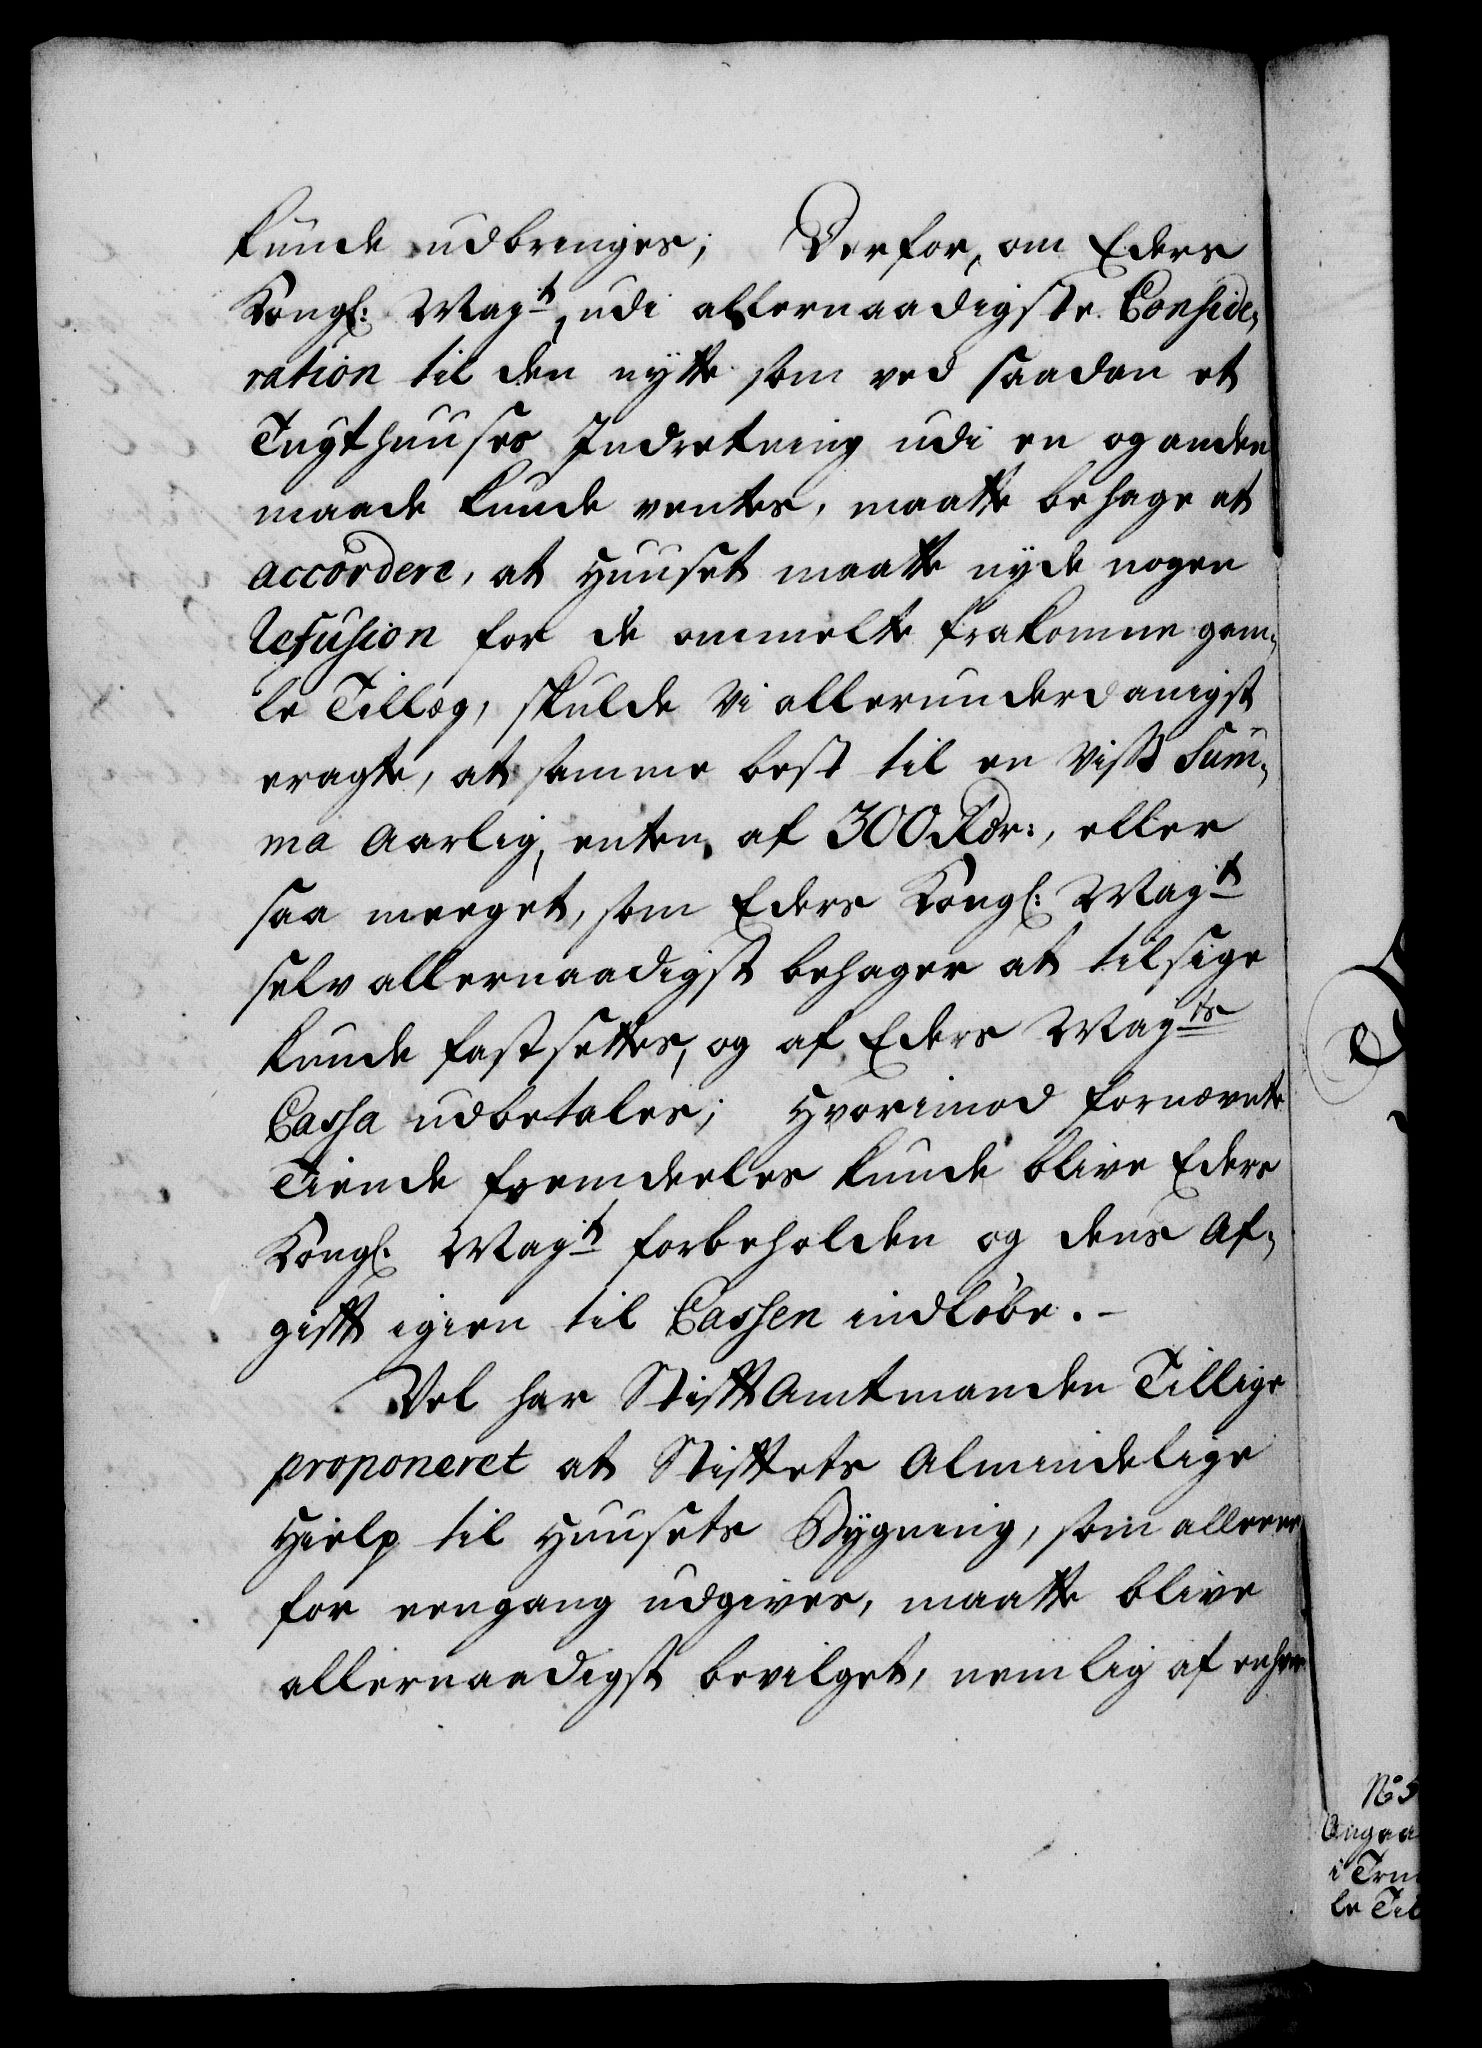 kunde udbringes; Derfor, om Eders
Kongl: Mayt, udi allernaadigste Conside,
ration til den nytte som ved saadan et
Tugthuuses Indretning udi en og anden
maade kunde ventes, maatte behage at
accordere, at Huuset maatte nyde nogen
Refusion for de ommelte frakomne gam,
le Tillæg, skulde Vi allerunderdanigst
eragte, at samme best til en viss Sum,
ma aarlig, enten af 300 Rdr:, eller
saa meeget, som Eders Kongl: Mayt
selv allernaadigst behager at tilsige
kunde fastsettes, og af Eders Mayts
Cassa udbetales; Hvorimod fornævnte
Tiende fremdeeles kunde blive Eders
Kongl. Mayt forbeholden og dens Af,
gift igien til Cassen indløbe. -
Vel har StiftAmtmanden Tillige
proponeret at Stiftets Almindelige
Hielp til Huusets Bygning, som alleene
for eengang udgives, maatte blive
allernaadigst bevilget, nemlig af enhver
No 5
Angaa
i Trn
le Til